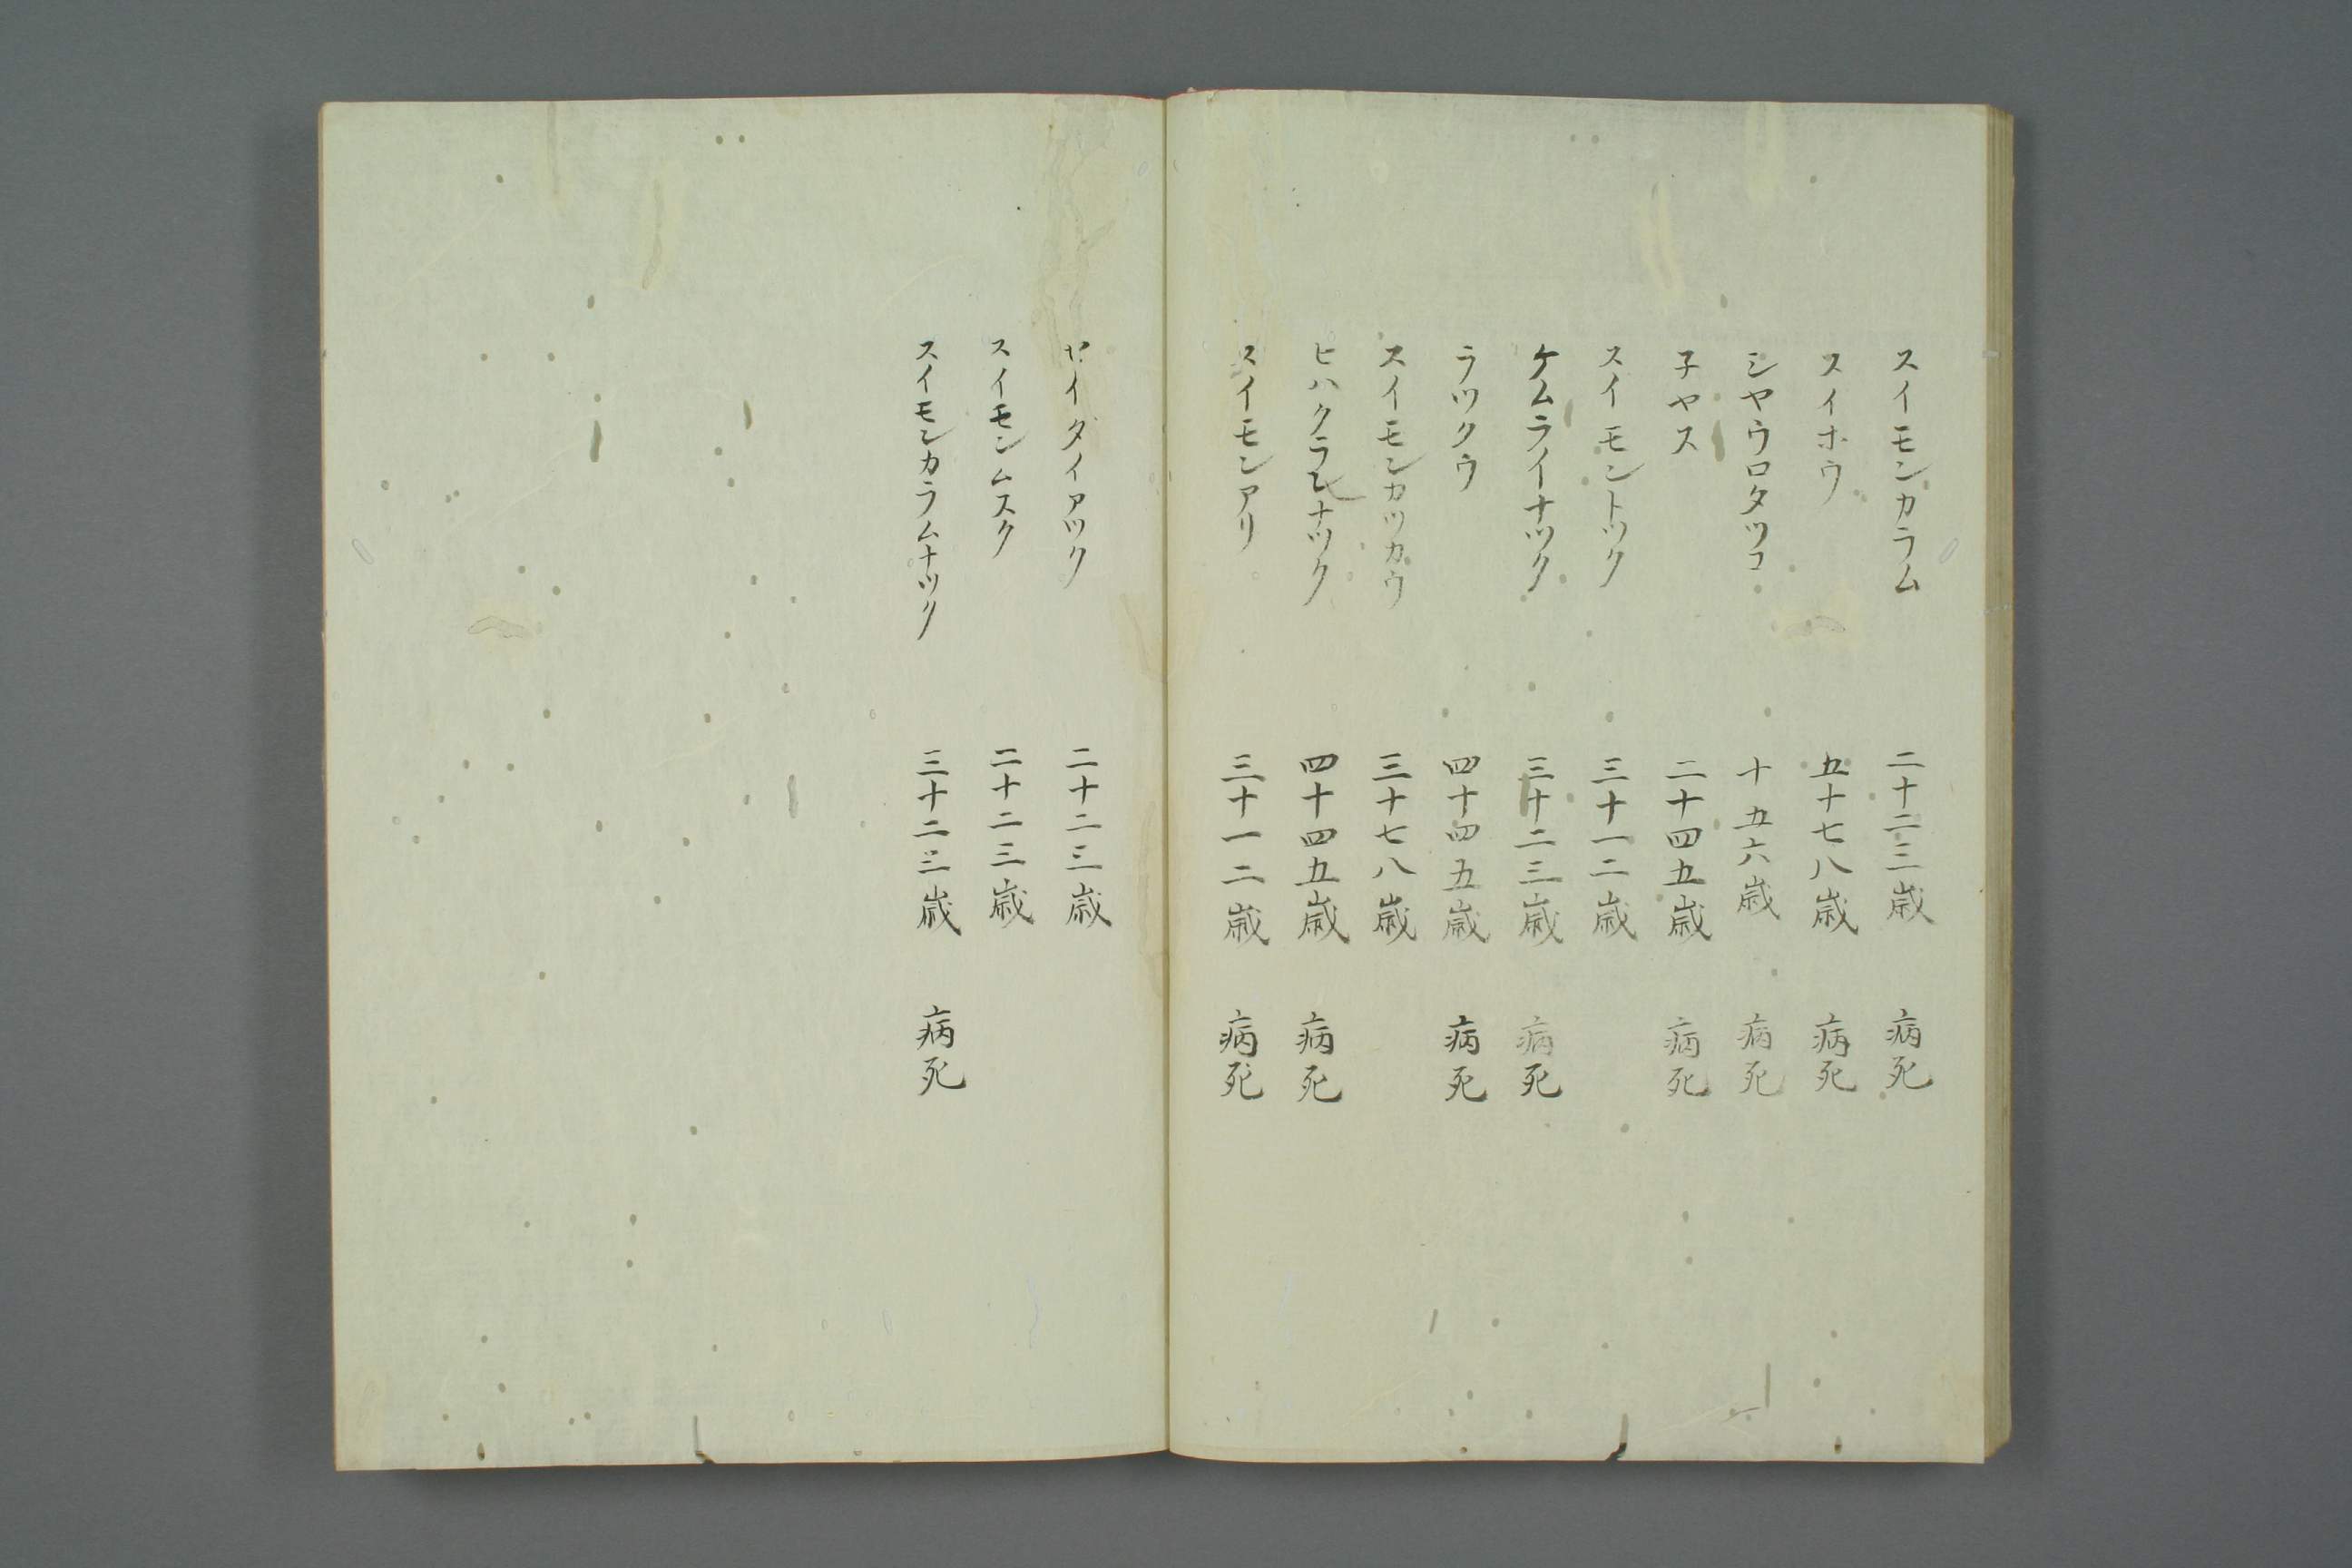 スイモンカラム 二十二三歳 病死
スイホウ 五十七八歳 病死
シヤウロタツコ 十五六歳 病死
子ヤス 二十四五歳 病死
スイモントツク 三十一二歳
ケムライナツク 三十二三歳 病死
ラツクウ 四十四五歳 病死
スイモンカツカウ 三十七八歳
ヒハクランナツク 四十四五歳 病死
スイモンアリ 三十一二歳 病死
セイタイアツク 二十二三歳
スイモンムスク 二十二三歳
スイモンカラムナツク 三十二三歳 病死